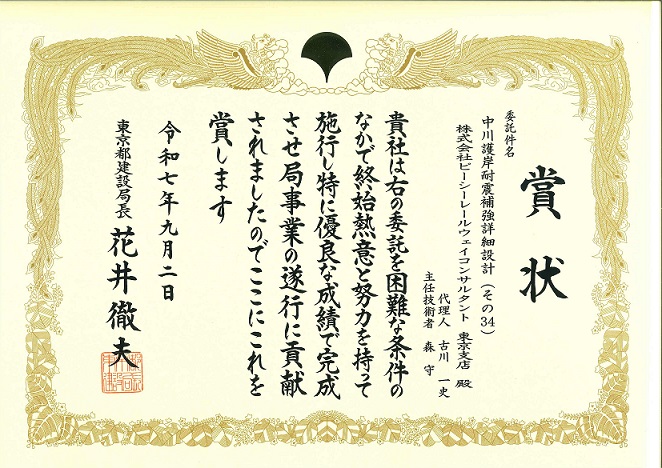 賞状
委託件名
中川護岸耐震補強詳細設計（その34）
株式会社ピーシーレールウェイコンサルタント 東京支店 殿
代理人 古川 一史
主任技術者 森 守
貴社は右の委託を困難な条件の
なかで終始熱意と努力を持って
施行し特に優良な成績で完成
させ局事業の遂行に貢献
されましたのでここにこれを
賞します
令和七年九月二日
東京都建設局長 花井徹夫